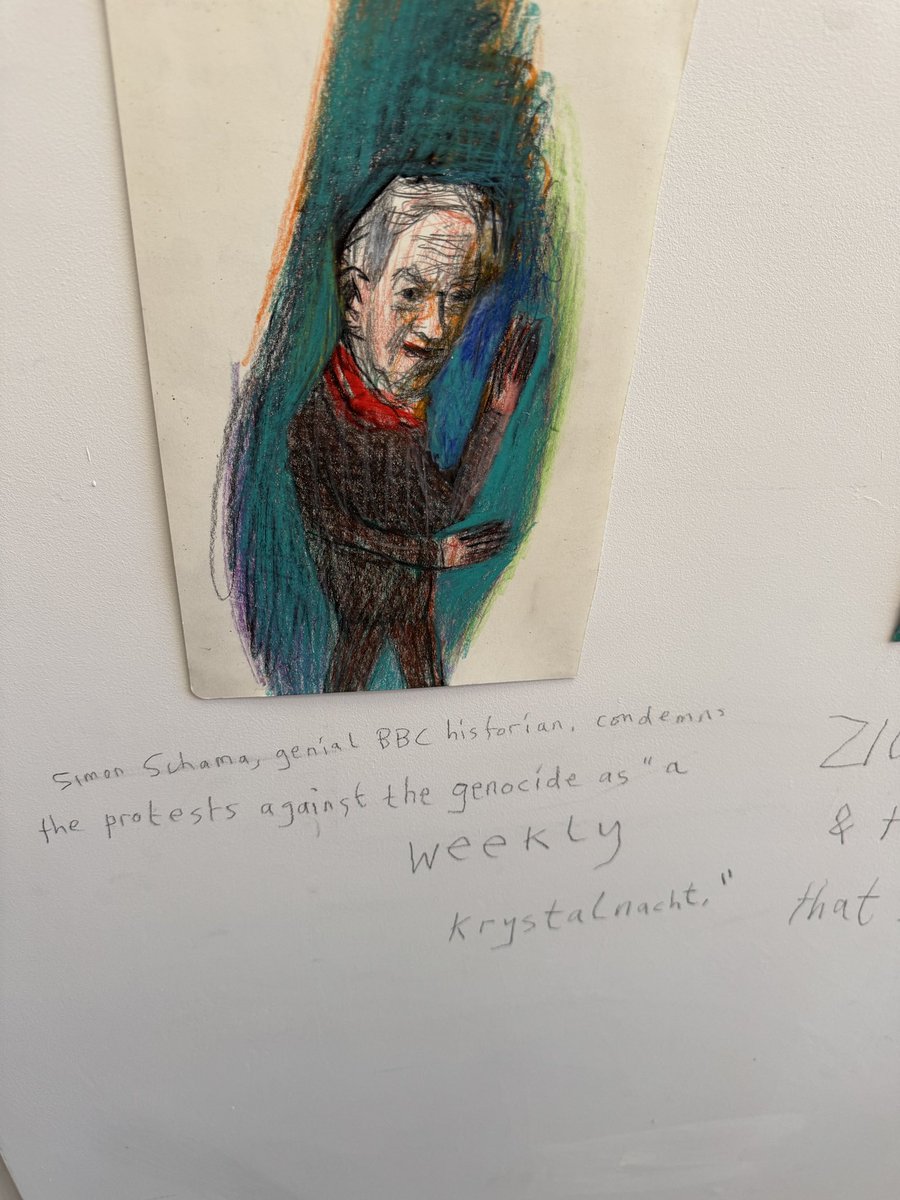 Simon Schama, genial BBC historian, condemns
the protests against the genocide as "a
weekly
krystalnacht."
ZIO
& t
that